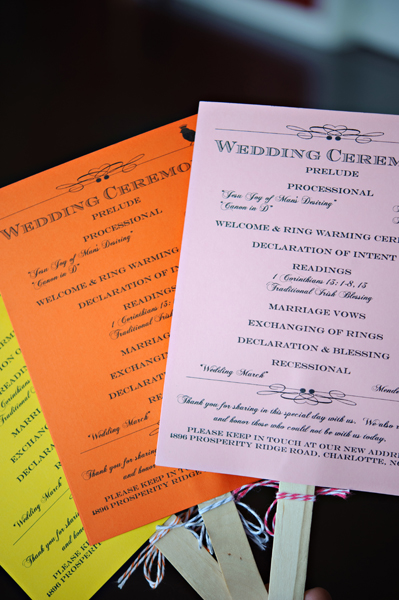 WEDDING CEREMO
PRELUDE
PROCESSIONAL
"Jesu Joy of Man's Desiring"
"Canon in D"
WELCOME & RING WARMING CER
DECLARATION OF INTENT
READINGS
1 Corinthians 13:1-8, 13
Traditional Irish Blessing
MARRIAGE VOWS
EXCHANGING OF RINGS
DECLARATION & BLESSING
RECESSIONAL
"Wedding March" Mende
Thank you for sharing in this special day with us. We also
and honor those who could not be with us today.
PLEASE KEEP IN TOUCH AT OUR NEW ADDRE
1896 PROSPERITY RIDGE ROAD, CHARLOTTE, NC
WEDDING CEREMO
PRELUDE
PROCESSIONAL
"Jesu Joy of Man's Desiring"
"Canon in D"
WELCOME & RING WARMI
DECLARATION OF INT
READINGS
1 Corinthians 13:
Traditional Irish
MARRIAGE
EXCHANGING
DECLARATION
RECES
"Wedding March"
Thank you for sharing
and honor
PLEASE KEEP IN
1896 PROSPERITY R
MARRI
EXCHAN
DECLARA
"Wedding March"
Thank you for
and
PLEASE
1896 PR